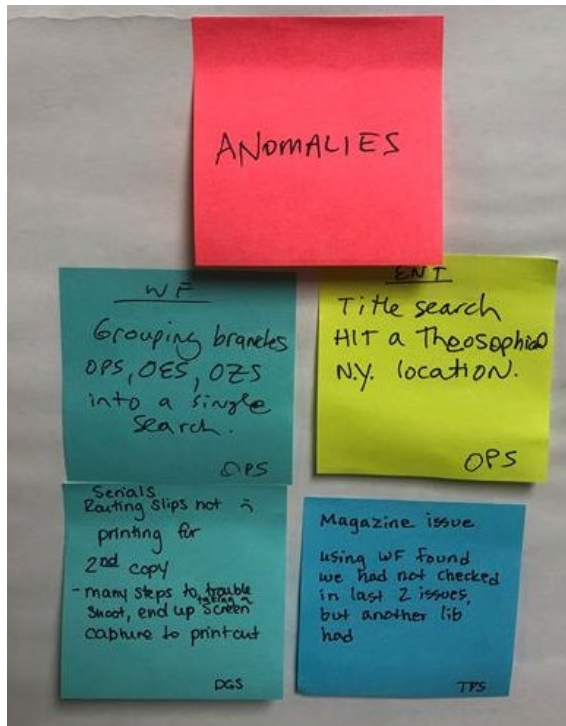 ANOMALIES
WF
Grouping branches
OPS, OES, OZS
into a single
search.
OPS
ENT
Title search
HIT a Theosophical
N.Y. location.
OPS
Serials
Routing slips not
printing for
2nd copy
- many steps to trouble
taking a
shoot, end up screen
capture to printout
DGS
Magazine issue
using WF found
we had not checked
in last 2 issues,
but another lib
had
TPS